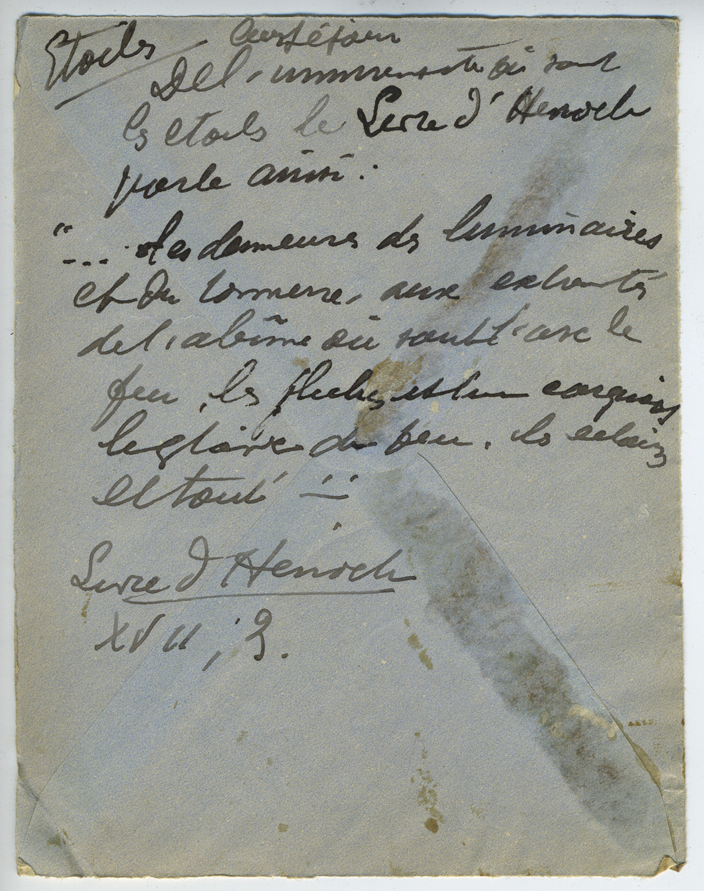 Etoiles
De l'immensité où sont
les etoiles le Livre d'Henoch
parle ainsi :
"... les demeures des luminaires
et du tonnerre, aux extremités
de l'abîme où sont l'arc de
feu, les fleches et leur carquois
le glaive de feu, les eclairs
et tout
Livre d'Henoch
XVII ; 3.